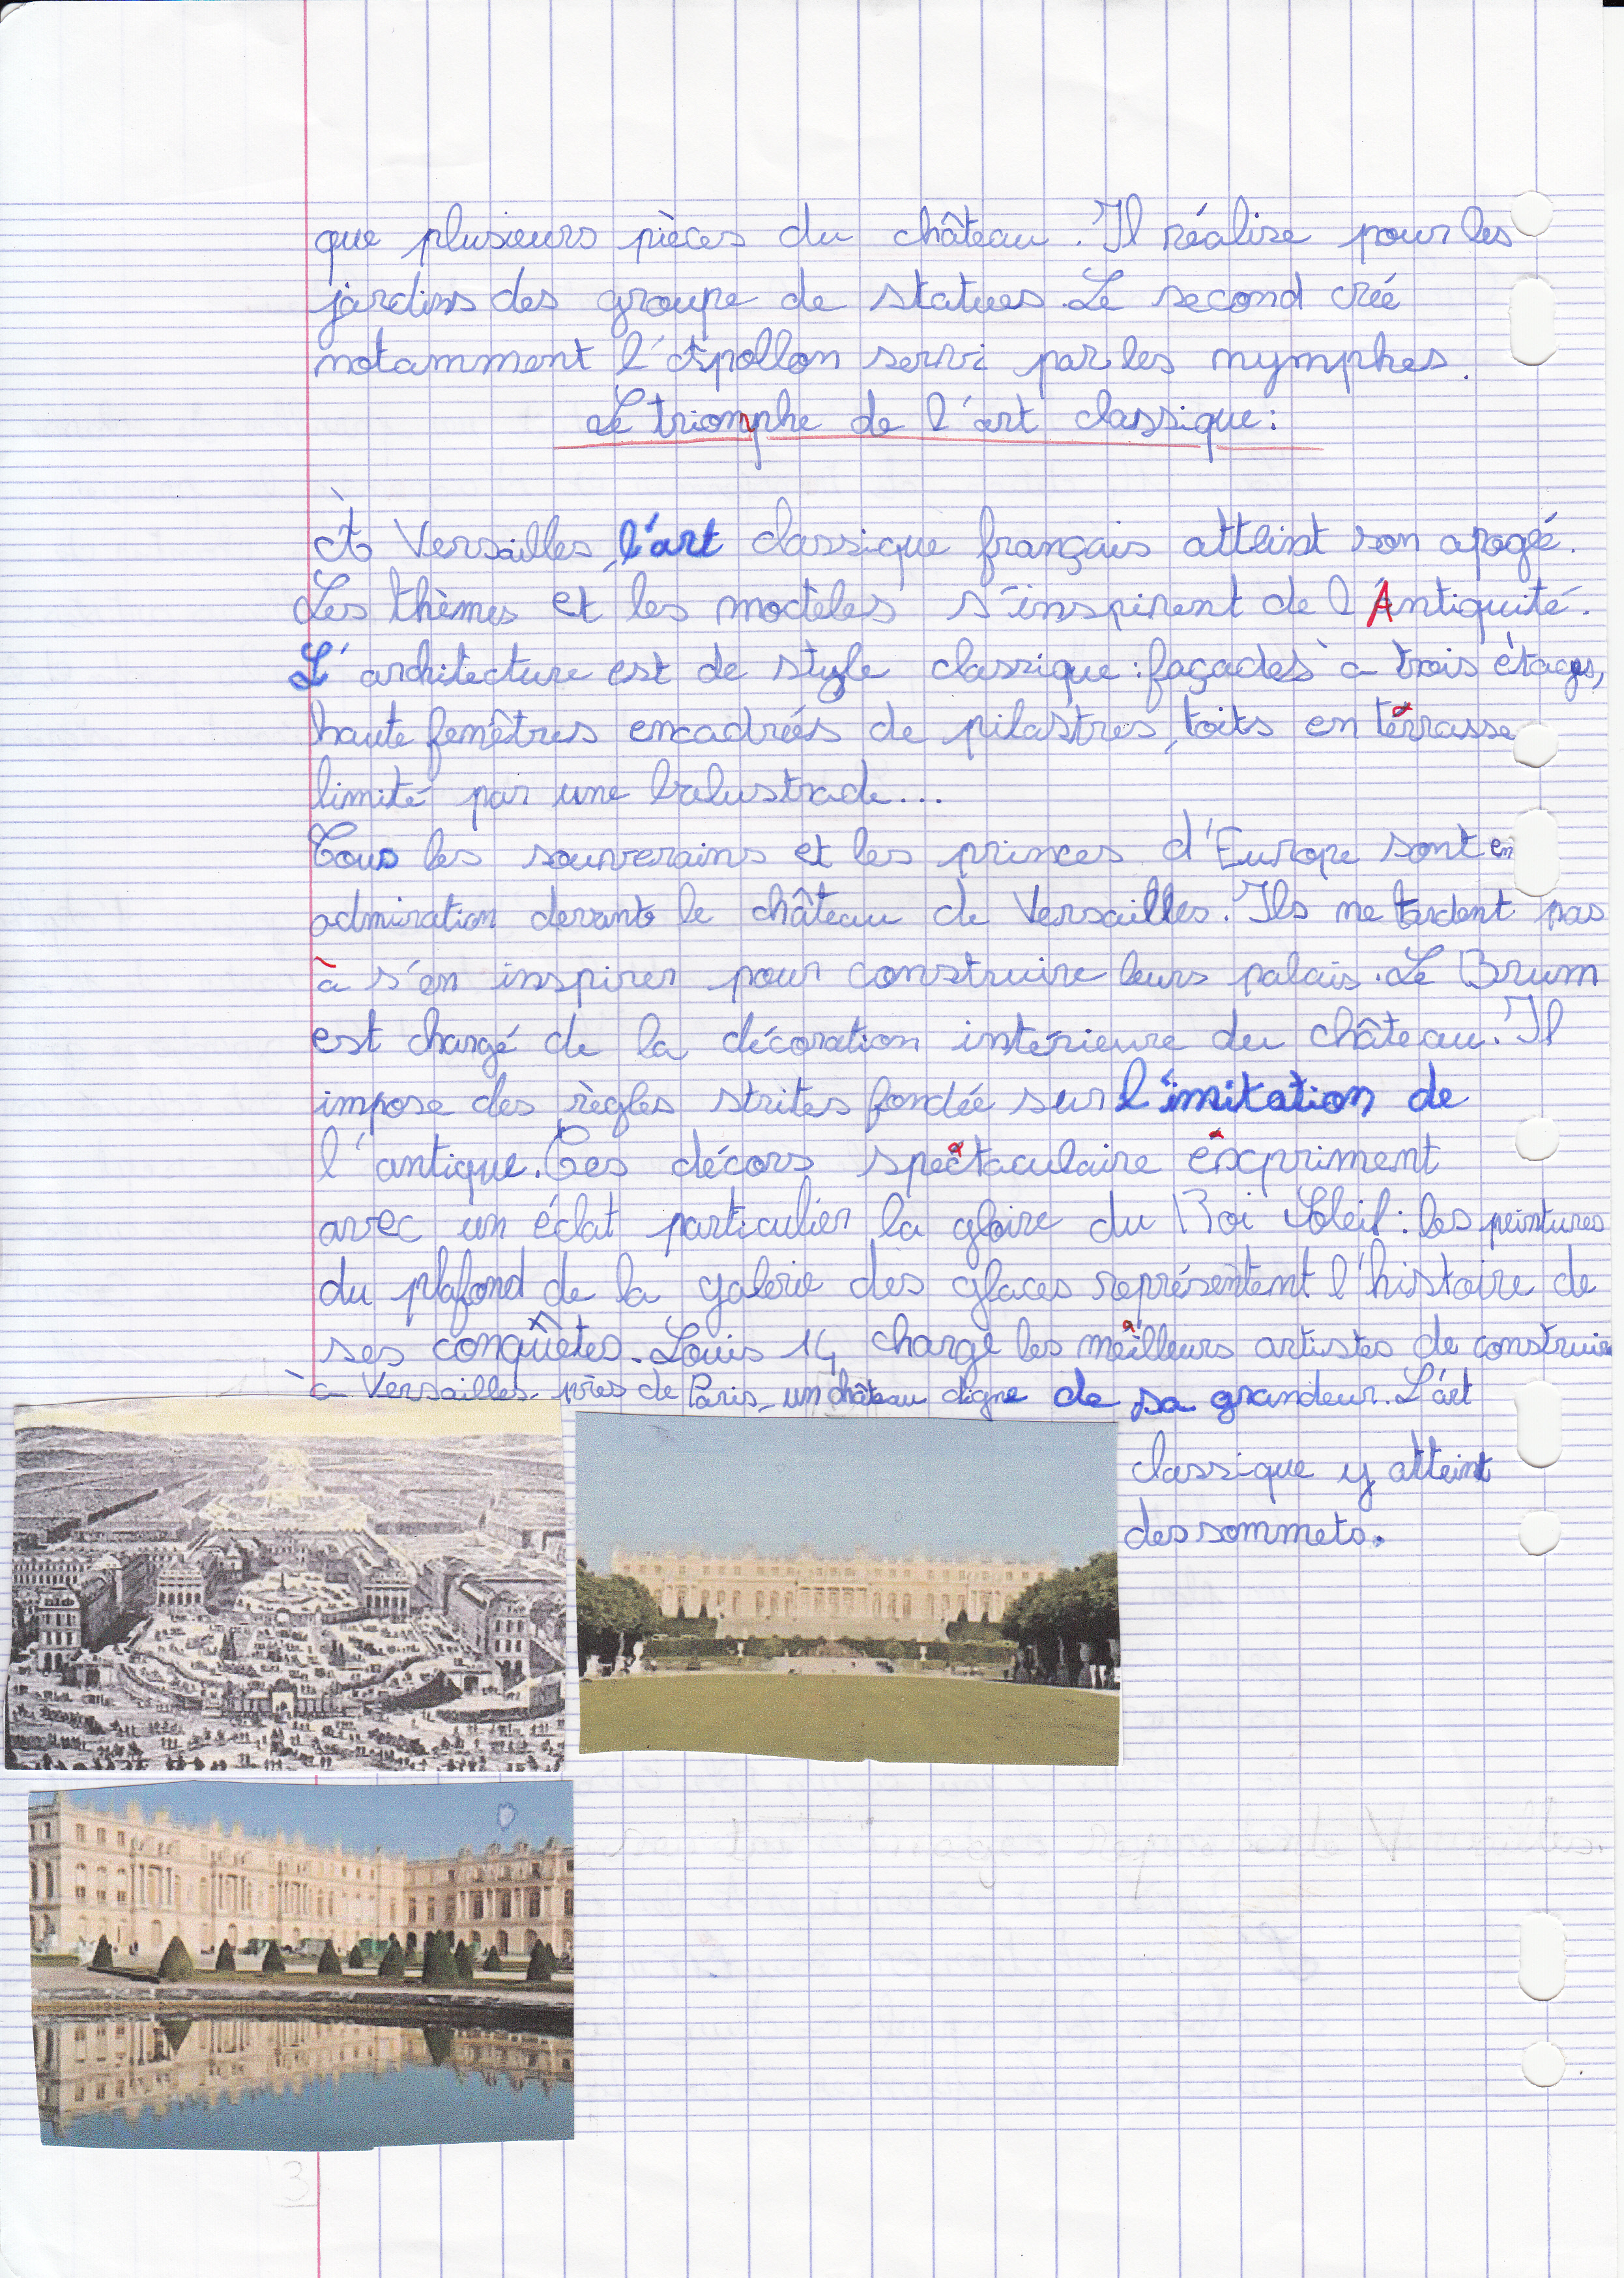 que plusieurs pièces du château. Il réalise pour les
jardins des groupe de statues. Le second crée
notamment l'Apollon servi par les nymphes.
Le triomphe de l'art classique:
À Versailles, l'art classique français atteint son apogé.
Les thèmes et les modèles s'inspirent de l'Antiquité.
L'architecture est de style classique: façades à trois étages,
haute fenêtres encadrés de pilastres, toits en térrasse
limité par une balustrade...
Tous les souverains et les princes d'Europe sont en
admiration devant le château de Versailles. Ils ne tardent pas
à s'en inspirer pour construire leurs palais. Le Brum
est chargé de la décoration intérieure du château. Il
impose des règles strites fondée sur l'imitation de
l'antique. Ces décors spectaculaire expriment
avec un éclat particulier la gloire du Roi Soleil: les peintures
du plafond de la galerie des glaces représentent l'histoire de
ses conquêtes. Louis 14 charge les meilleurs artistes de construire
à Versailles, près de Paris, un château digne de sa grandeur. L'art
classique y atteint
des sommets.
3